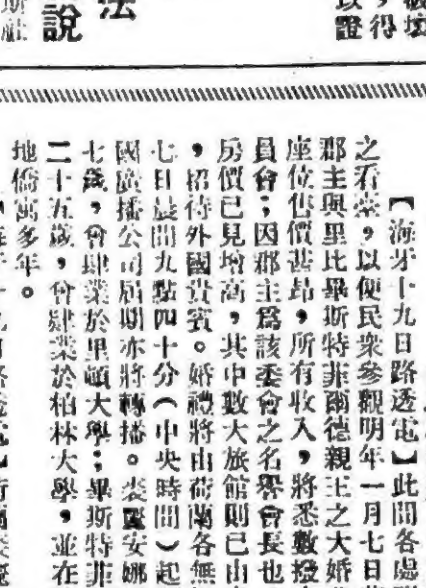 破壞
，得
以證
法
說
斯社
【海牙十九日路透電】此間各
之看臺，以便民衆參觀明年一月七日
郡主與里比畢斯特菲爾德親王之大婚
座位售價甚昂，所有收入，將悉數撥
員會；因郡主爲該委會之名譽會長也
房價已見增高，其中數大旅館則已由
，招待外國貴賓。婚禮將由荷蘭各無
七日晨間九點四十分（中央時間）起
國廣播公司屆期亦將轉播。裘麗安娜
七歲，曾肄業於里頓大學；畢斯特菲
二十五歲，曾肄業於柏林大學，並在
地僑寓多年。